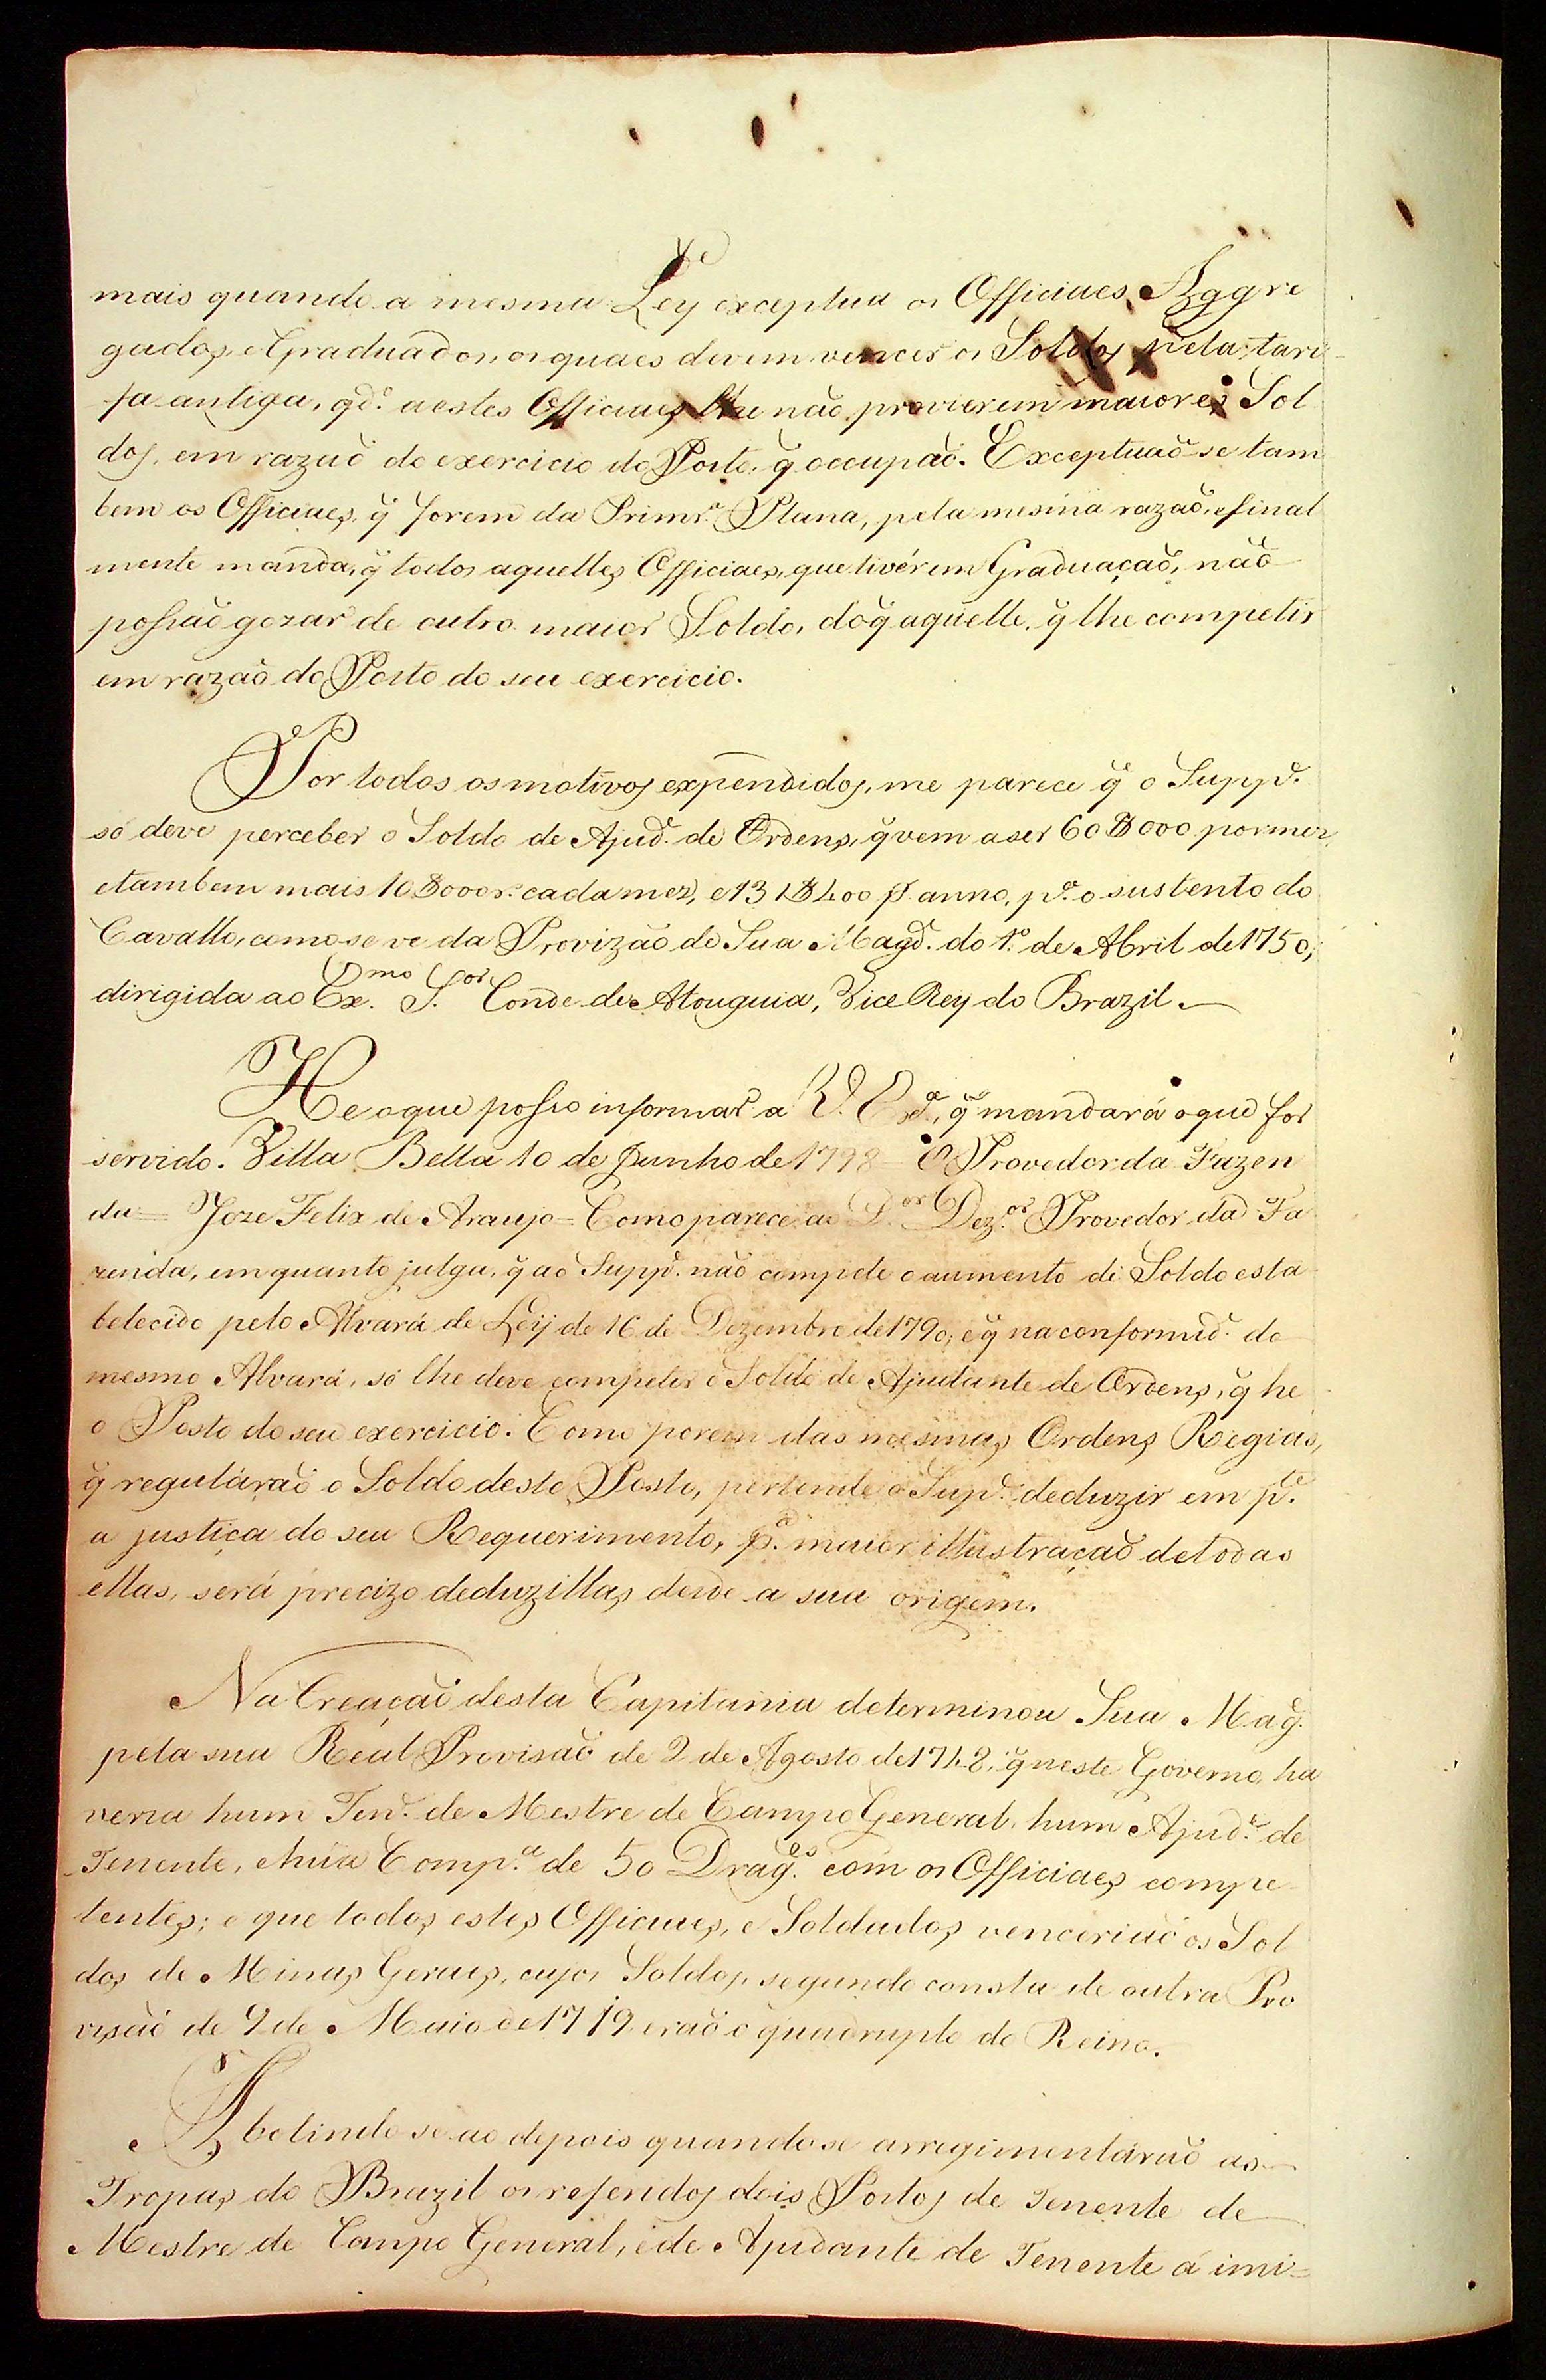 mais quando a mesma Ley exceptua os Officiaes Aggre
gados, e Graduados, os quaes devem vencer os Soldos pela tari
fa antiga, qdo. a estes Officiaes lhe não provierem maiores Sol
dos, em razaõ do exercicio do Posto, q̃ occupaõ. Exceptuaõ-se tam
bem os Officiaes, q̃ forem da Primra. Plana, pela mesma razaõ, e final
mente manda, q̃ todos aquelles Officiaes, que tivérem Graduaçaõ, não
possaõ gozar de outro maior Soldo, do q̃ aquelle, q̃ lhe competir
em razaõ do Posto do seu exercicio.
Por todos os motivos expendidos, me parece q̃ o Suppe.
só deve perceber o Soldo de Ajude. de Ordens, q̃ vem a ser 60$000 por mez,
e tambem mais 10$000 rs. cada mez, e 131$400 p. anno, pa. o sustento do
Cavallo, como se ve da Provizão de Sua Magde. do 1º. de Abril de 1750,
dirigida ao Exmo. Sor. Conde de Atouguia, Vice Rey do Brazil.
He o que posso informar a V. Exa., q̃ mandará o que for
servido. Villa Bella 10 de Junho de 1798 = O Provedor da Fazen
da = Joze Felix de Araujo = Como parece ao Dor. Dezor. Provedor da Fa
zenda, em quanto julga, q̃ ao Suppe. não compete o aumento de Soldo esta
belecido pelo Alvará de Ley de 16 de Dezembro de 1790, e q̃ na conformide. do
mesmo Alvará, só lhe deve competir o Soldo de Ajudante de Ordens, q̃ he
o Posto do seu exercicio. Como porem das mesmas Ordens Regias,
q̃ reguláraõ o Soldo deste Posto, pertende o Supe. deduzir em pe.
a justiça do seu Requerimento, pa. maior illustraçaõ de todas
ellas, será precizo deduzillas desde a sua origem.
Na Creaçaõ desta Capitania determinou Sua Mag.
pela sua Real Provisaõ de 2 de Agosto de 1748, q̃ neste Governo ha
veria hum Tene. de Mestre de Campo General, hum Ajude. de
Tenente, e hũa Compa. de 50 Drages. com os Officiaes compe
tentes; e que todos estes Officiaes, e Soldados venceriaõ os Sol
dos de Minas Geraes, cujos Soldos, segundo consta de outra Pro
visaõ de 9 de Maio de 1719 eraõ o quadruplo do Reino.
Abolindo-se ao depois quando se arregimentáraõ as
Tropas do Brazil os referidos dois Postos de Tenente de
Mestre de Campo General, e de Ajudante de Tenente á imi=